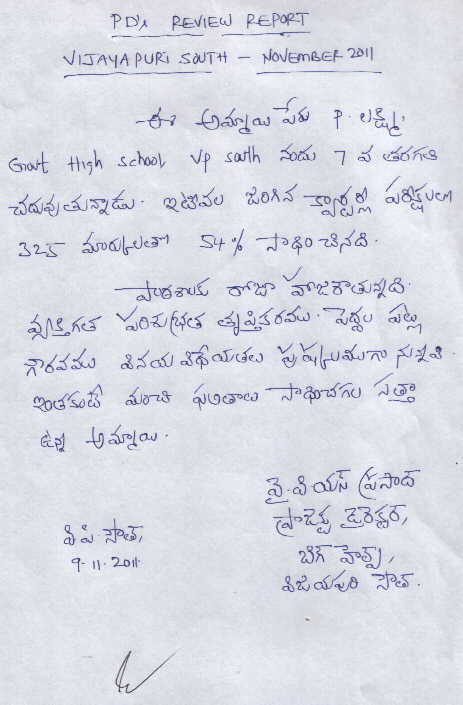 PD's REVIEW REPORT
VIJAYAPURI SOUTH - NOVEMBER 2011
ఈ అమ్మాయి పేరు P. లక్ష్మి,
Govt High school, Vp south నందు 7 వ తరగతి
చదువుతున్నాడు. ఇటీవల జరిగిన క్వార్టర్లీ పరీక్షలలో
325 మార్కులతో 54% సాధించినది.
పాఠశాలకు రోజూ హాజరౌతున్నది.
వ్యక్తిగత పరిశుభ్రత తృప్తికరము. పెద్దల పట్ల
గౌరవము వినయ విధేయతలు పుష్కలముగా నున్నవి
ఇంతకంటే మంచి ఫలితాలు సాధించగల సత్తా
ఉన్న అమ్మాయి.
వై.వి.యస్ ప్రసాద్
ప్రాజెక్టు డైరెక్టర్,
వి.పి. సౌత్,
బిగ్ హెల్ప్,
9-11-2011
విజయపురి సౌత్.